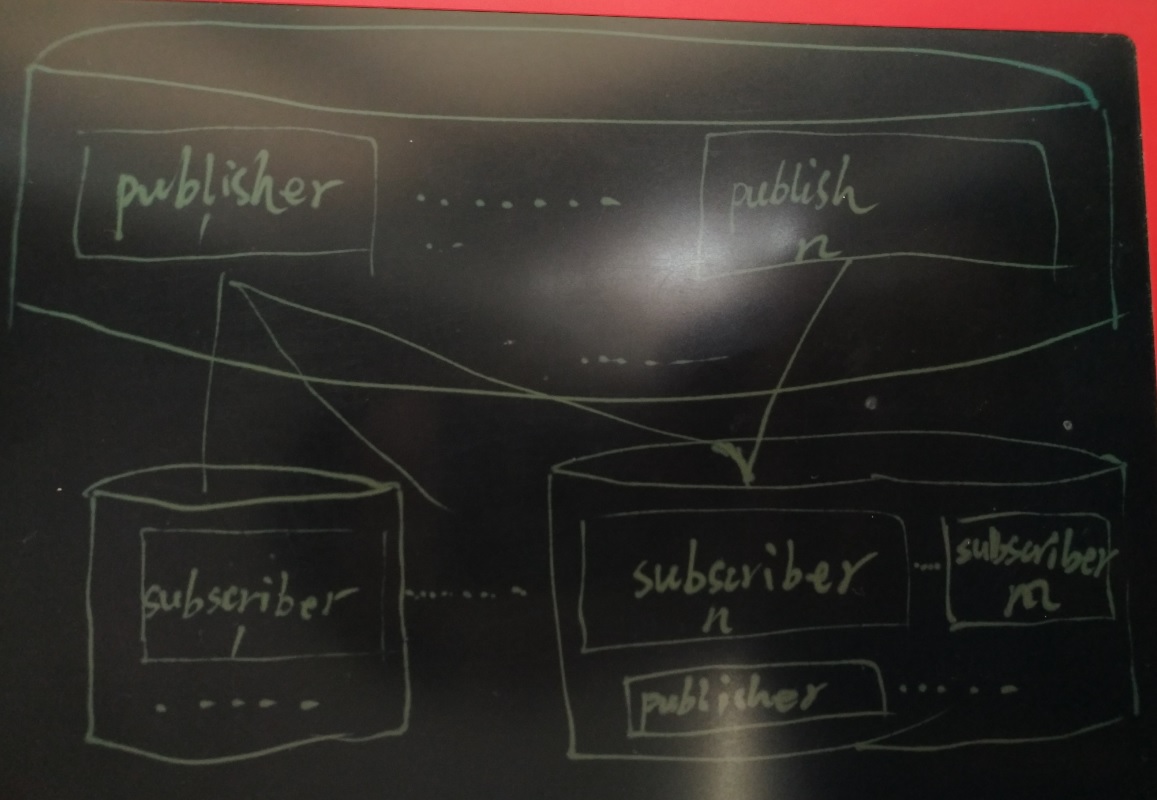 publisher
1
publish
n
subscriber
1
subscriber
n
subscriber
m
publisher